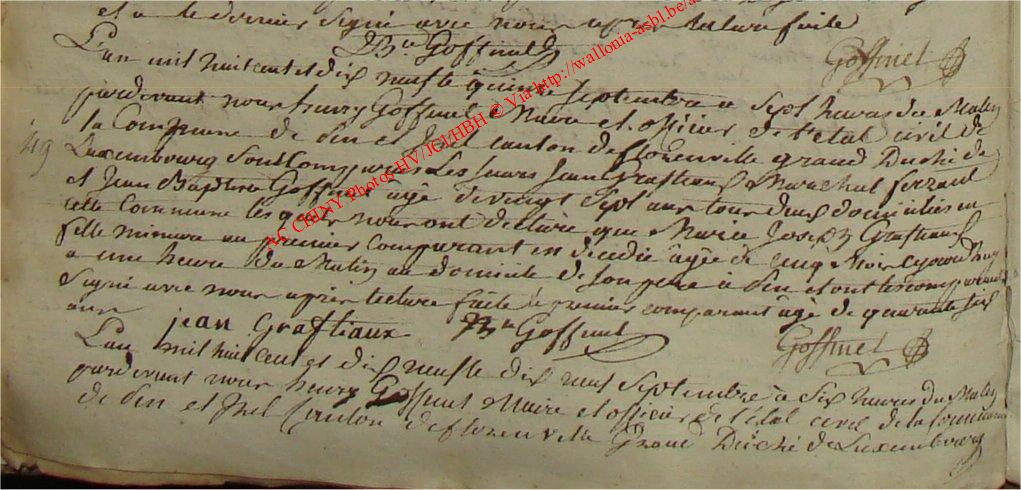 et a le dernier signé avec nous après lecture faite
JBte Goffinet
Goffinet
L'an mil huit cent et dix neuf le quinze septembre a sept heures du Matin
pardevant nous henry Goffinet Maire et officier de l'état civil de
49
la Commune de et canton de florenville grand Duché de
Luxembourg sont Comparus Les sieurs Jean Graftiaux Marechal ferrant
et Jean Baptiste Goffinet âgé de vingt sept ans tous deux domiciliés en
cette Commune les quels nous ont declaré que Marie Joseph Graftiaux
fille mineure au premier Comparant en decedie âgée de cinq Mois cejourd'huy
a une heure du Matin au domicile de son pere à et ont les comparants
Signé avec nous après lecture faite le premier comparant âgé de quarante six
ans
jean Graftiaux JBte Goffinet
Goffinet
L'an mil huit cent et dix neuf le dix neuf septembre à six heures du Matin
pardevant nous henry Goffinet Maire et officier de l'état civil de la commune
de et Canton de florenville Grand Duché de Luxembourg
AC CHINY Photos HV/JCl/HBH © Via http://wallonia-asbl.be/a